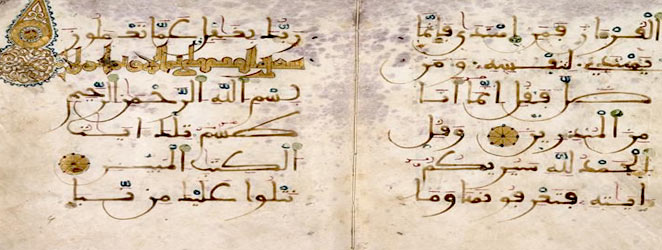 الفرءان فمن اهتدى فإنما
يهتدي لنفسه ومن
ضل ففل إنما أنا
من المنذرين وفل
الحمد لله سيريكم
ءايته فتعرفونها وما
ربك بغفل عما تعملون
سورة
بسم الله الرحمن الرحيم
طسم تلك ءايت
الكتب المبين
نتلوا عليك من نبإ